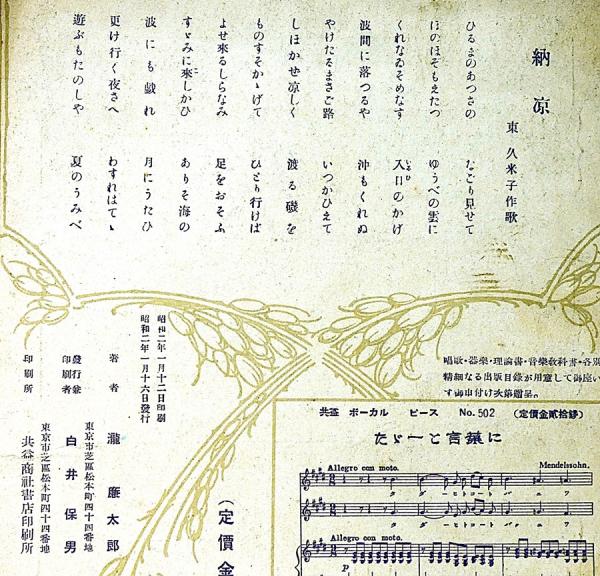 納涼
東久米子作歌
ひるまのあつさの なごり見せて
ほのほぞもえたつ ゆうべの雲に
くれなゐそめなす 入日のかげ
波間に落つるや 沖もくれぬ
やけたるまさご路 いつかひえて
しほかぜ涼しく 渡る磯を
ものすそかゝげて ひとり行けば
よせ來るしらなみ 足をおそふ
すゞみに來しかひ ありそ海の
波にも戯れ 月にうたひ
更け行く夜さへ わすれはてゝ
遊ぶもたのしや 夏のうみべ
昭和二年一月十二日印刷
昭和二年一月十六日發行
著者 瀧廉太郎
東京市芝區松本町四十四番地
發行兼印刷者 白井保男
東京市芝區松本町四十四番地
印刷所 共益商社書店印刷所
(定價金
唱歌・器樂・理論書・音樂敎科書・各別
精細なる出版目錄が用意して御座い
す御申付け次第贈呈。
共益 ボーカル ピース No. 502 (定價金貳拾錢)
たゞ一と言葉に
Allegro con moto. Mendelssohn.
タダーヒトコート バニヲ
タダーヒトコート バニヲ
Allegro con moto.
p